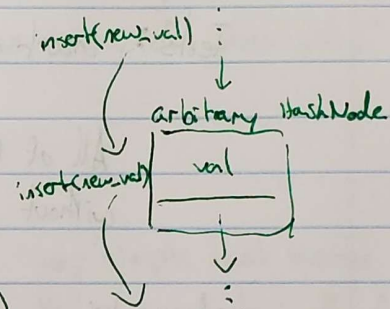 insert(new_val)
arbitrary HashNode
val
insert(new_val)